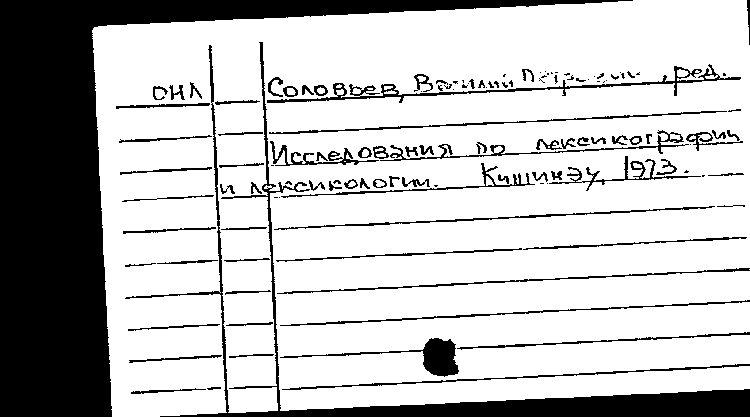 ОНЛ Соловьев, Василий Петрович, ред.
Исследования по лексикографии
и лексикологии. Кишинэу, 1973.